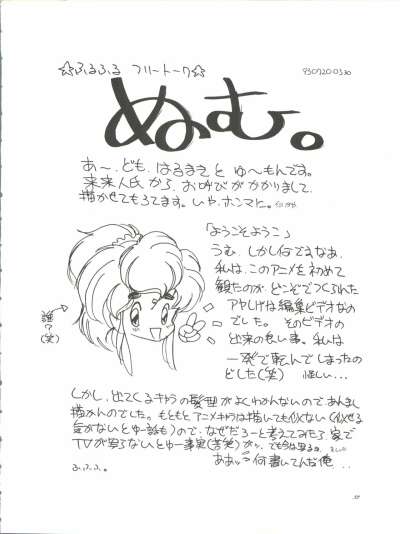 ☆ふるふる フリートーク☆
930720.0330
ぬおむ。
あ〜、ども、はるまきとゆ〜もんです。
未来人氏から、お呼びがかかりまして、
描かせてもろてます。いや、ホンマに。
「ようこそようこ」
うむ、しかし何ですなあ、
私は、このアニメを初めて
観たのが、どこぞでつくられた
アヤしげな編集ビデオなの
でした。そのビデオの
出来の良い事。私は
一発で転んでしまったの
でした(笑) 怪しい…
誰?(笑)
しかし、出てくるキャラの髪型がよくわかんないのであんまし
描かんのでした。もともとアニメキャラは描いても似ない(似せる
気がないとゆー話も)ので、なぜだろーと考えてみたら、家で
TVが写らないとゆー事実(苦笑)が、でも今は写るョ。
ふ、ふ、ふ。
ああっ何書いてんだ俺…